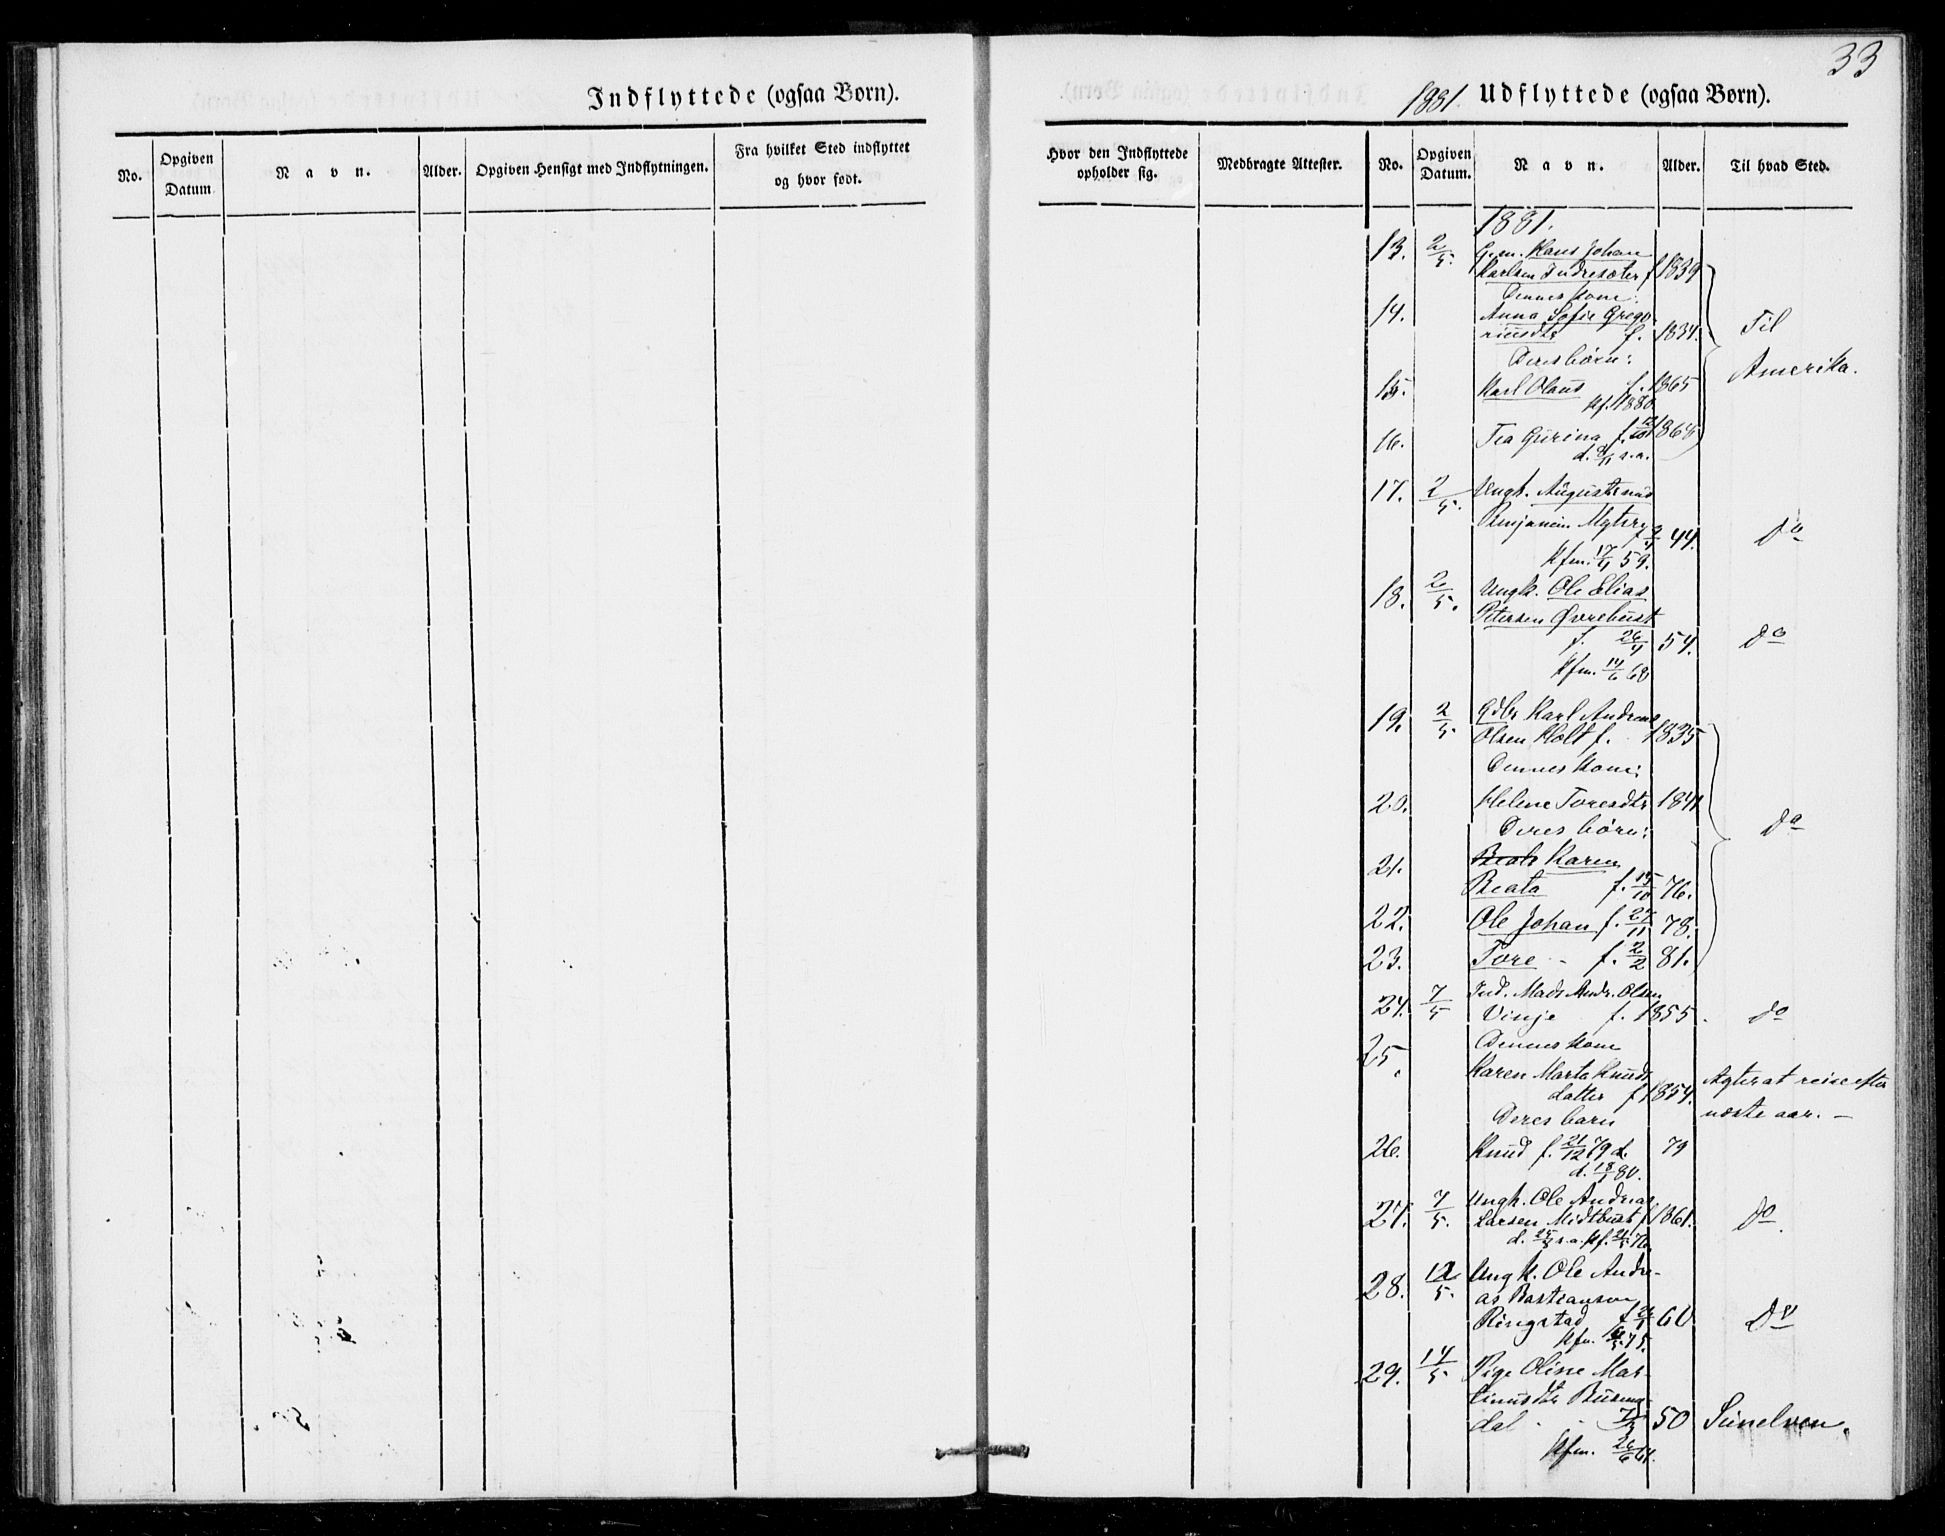 33
Indflyttede (ogsaa Børn).
No.
Opgiven Datum
Navn.
Alder.
Opgiven Hensigt med Indflytningen.
Fra hvilket Sted indflyttet
og hvor født.
1881. Udflyttede (ogsaa Børn).
Hvor den Indflyttede
opholder sig.
Medbragte Attester.
No.
Opgiven Datum.
Navn.
Alder.
Til hvad Sted.
1881.
13. 2/5. G.m. Hans Johan
Karlsen Indresæter f 1839
Dennes kone:
14. Anna Sofie Grego-
riusdtr f. 1834. Til
Deres børn: Amerika.
15. Karl Olaus f. 1865
kf. 1880
16. Tea Gurina f. 1868
d. s.a.
17. 2/5. Ungk. Augustinus
Benjamin Myhre
44. do
kfm. 17/4 59.
18. 2/5. Ungk. Ole Elias
Petersen Øvrebust
f. 26/4 54. do
kfm. 14/6 68
19. 2/5. Gdbr Karl Andreas
Olsen Holt f. 1835
Dennes kone:
20. Helene Toresdtr 1841
Deres børn: do
21. Karen
Beata f. 15/10 76.
22. Ole Johan f. 27/11 78.
23. Tore - f. 2/2 81.
24. 7/5 Ind. Mads Andr. Olsen
Vinje f. 1855. do
25. Dennes kone
Karen Marta Knuds
datter f 1854. Agter at reise efter
Deres barn næste aar. -
26. Knud f. 21/12 79 d. 79
d. 18/1 80.
27. 7/5. Ungk. Ole Andreas
Larsen Midtbust f 1861. do.
d. s.a. kf. 76.
28. 12/5. Ungk. Ole Andre-
as Bastianson
Ringstad 60 do
kfm. 75.
29. 14/5 Pige Oline Mar-
tinusdtr
dal - - 50 Sunelven.
kfm. 26/6 64.